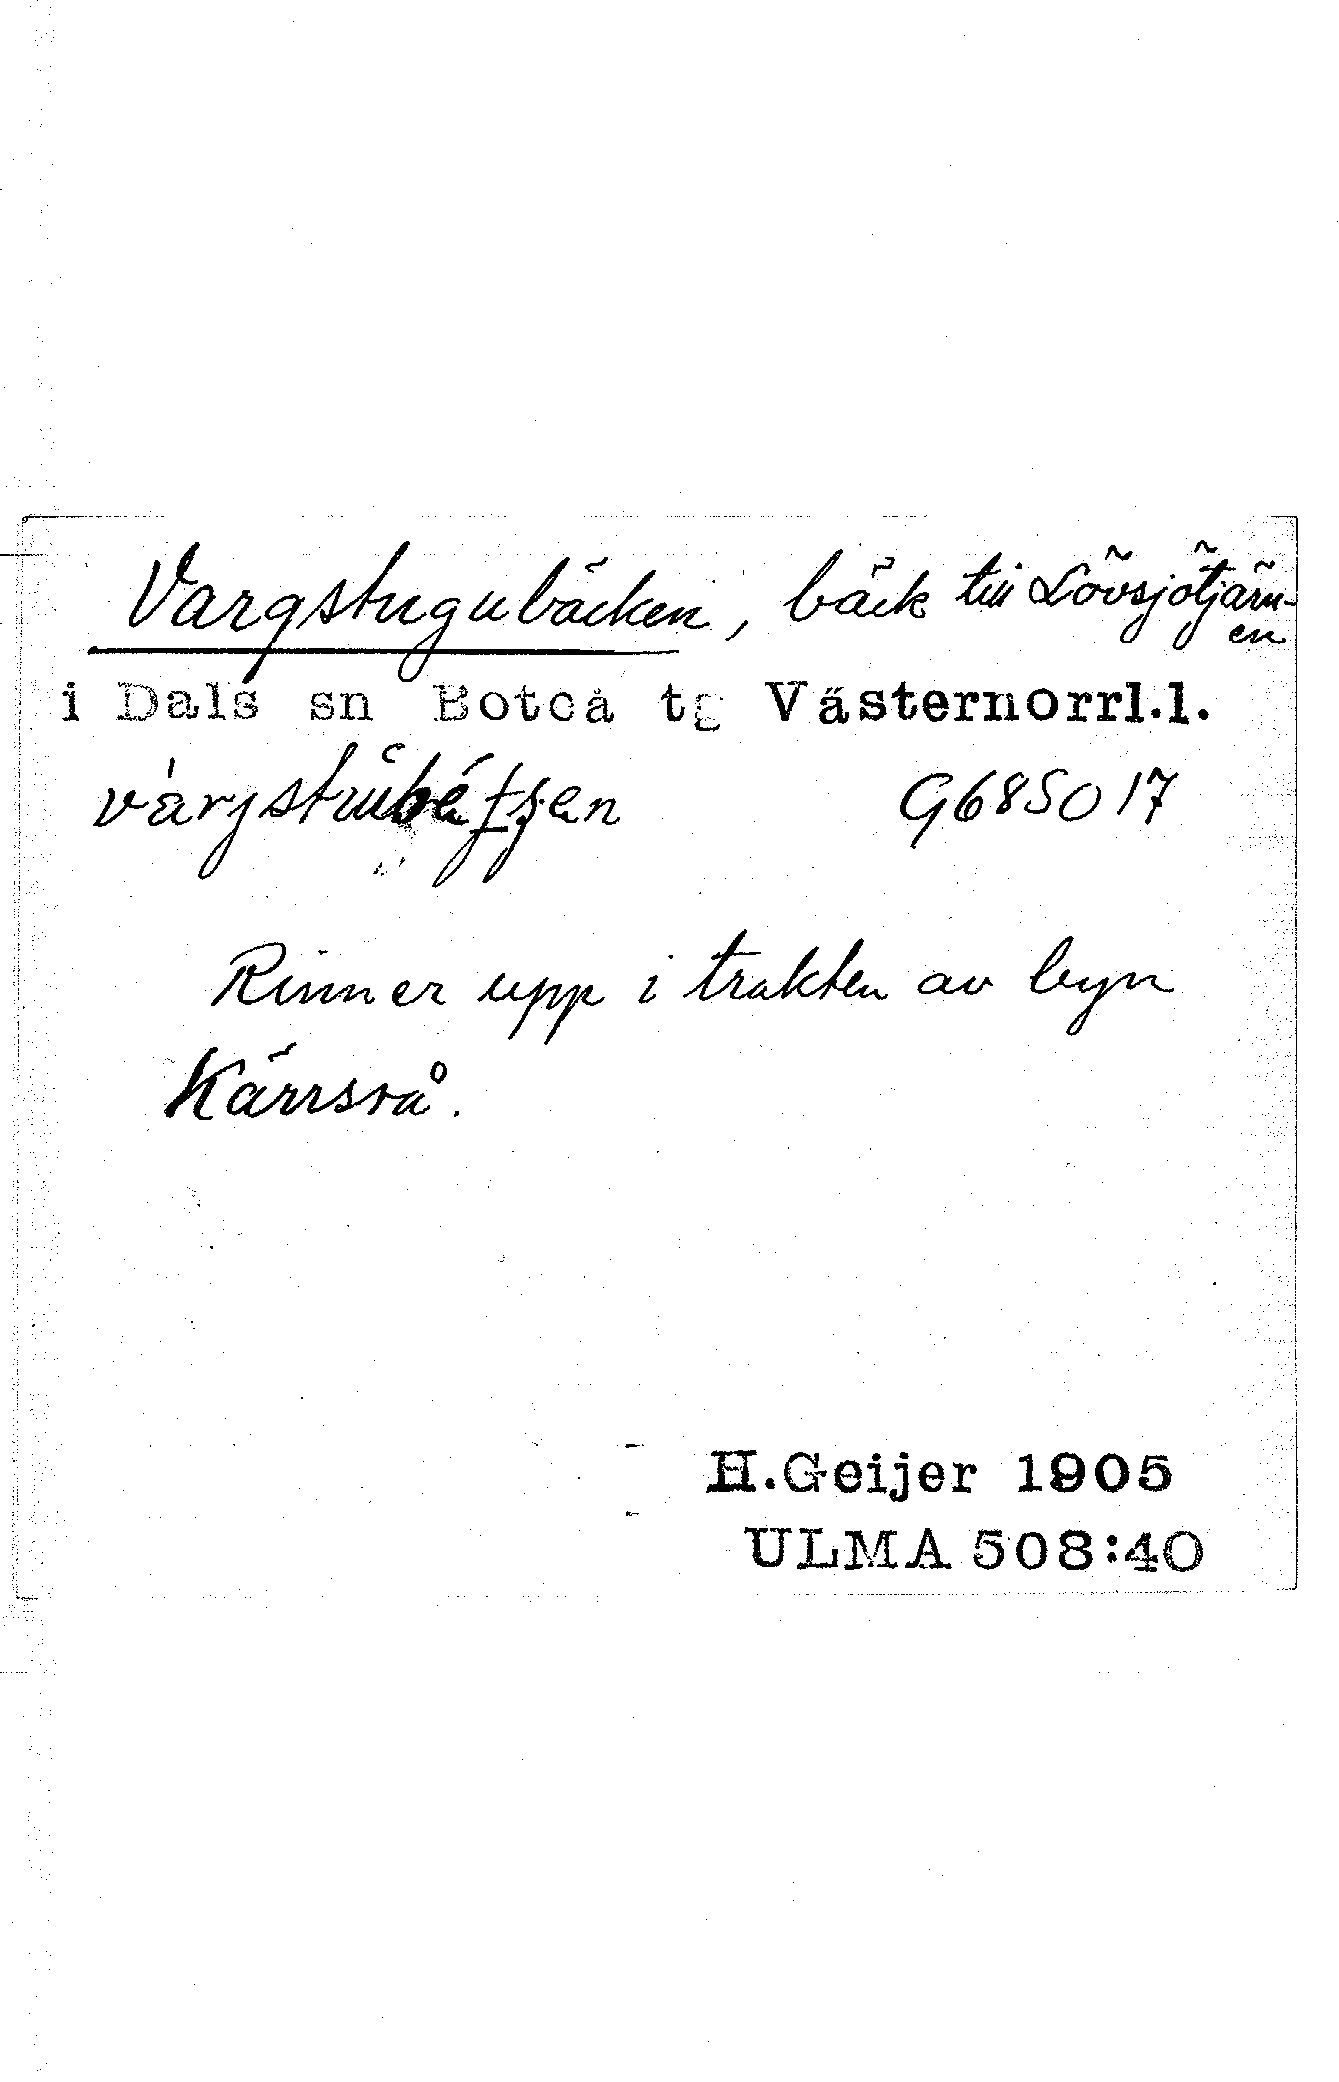 Vargstugubäcken, bäck till Lövsjötjärn-
en
i Dals sn Boteå tg Västernorrl.l.
G6 8S0 17
Rinner upp i trakten av byn
Kärrsrå.
H.Geijer 1905
ULMA 508:40